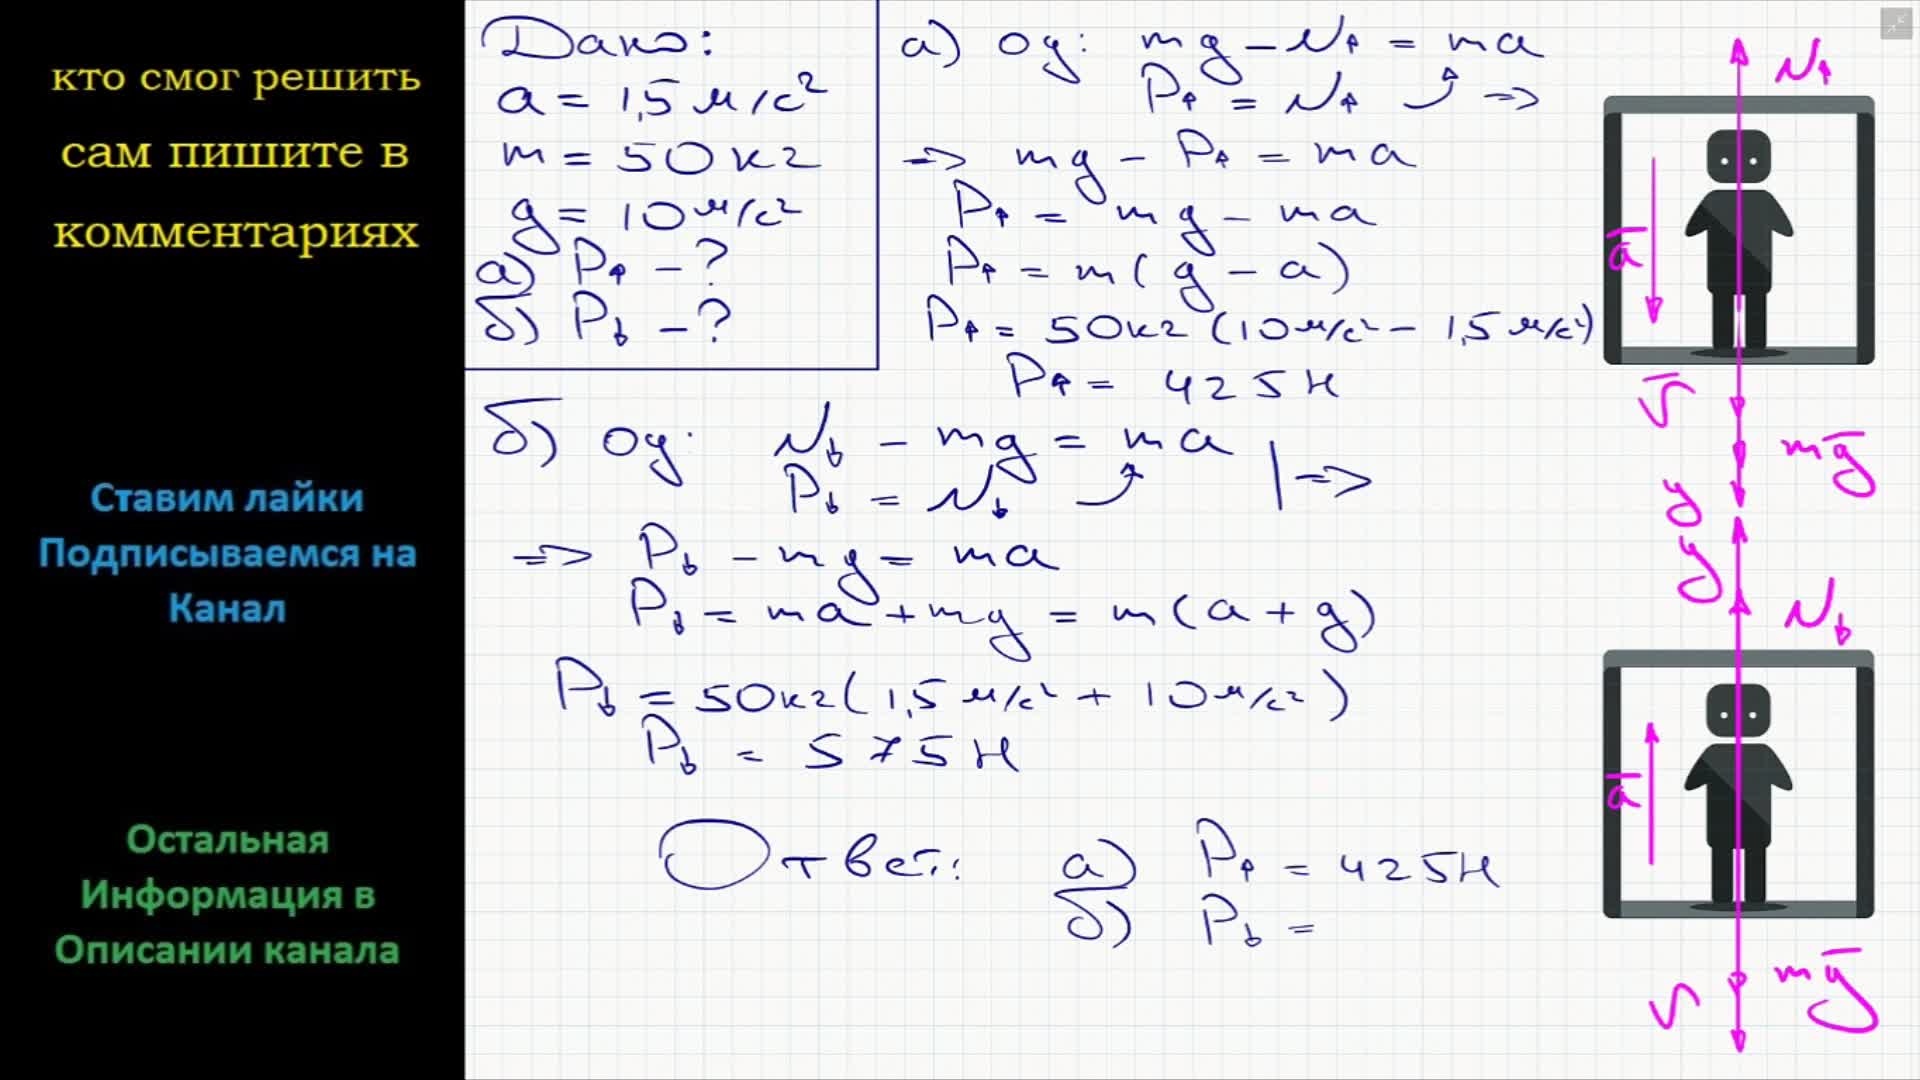 кто смог решить
сам пишите в
комментариях
Ставим лайки
Подписываемся на
Канал
Остальная
Информация в
Описании канала
Дано:
a = 1,5 м/с²
m = 50 кг
g = 10 м/с²
а) P↑ - ?
б) P↓ - ?
а) Oy: mg - N↑ = ma
P↑ = N↑ =>
=> mg - P↑ = ma
P↑ = mg - ma
P↑ = m(g - a)
P↑ = 50 кг (10 м/с² - 1,5 м/с²)
P↑ = 425 Н
б) Oy: N↓ - mg = ma
P↓ = N↓ | =>
=> P↓ - mg = ma
P↓ = ma + mg = m(a + g)
P↓ = 50 кг (1,5 м/с² + 10 м/с²)
P↓ = 575 Н
Ответ: а) P↑ = 425 Н
б) P↓ =
N↑
a
v
mg
y
y
N↓
a
v
mg